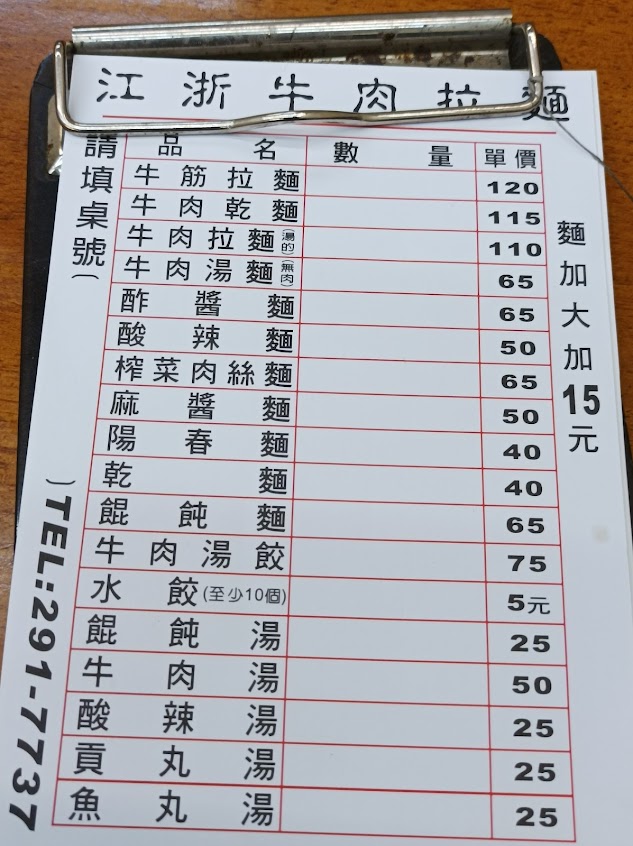 江浙牛肉拉麵
請填桌號( )
品名 數量 單價
牛筋拉麵 120
牛肉乾麵 115
牛肉拉麵(湯的) 110
牛肉湯麵(無肉) 65
酢醬麵 65
酸辣麵 50
榨菜肉絲麵 65
麻醬麵 50
陽春麵 40
乾麵 40
餛飩麵 65
牛肉湯餃 75
水餃(至少10個) 5元
餛飩湯 25
牛肉湯 50
酸辣湯 25
貢丸湯 25
魚丸湯 25
麵加大加15元
TEL:291-7737